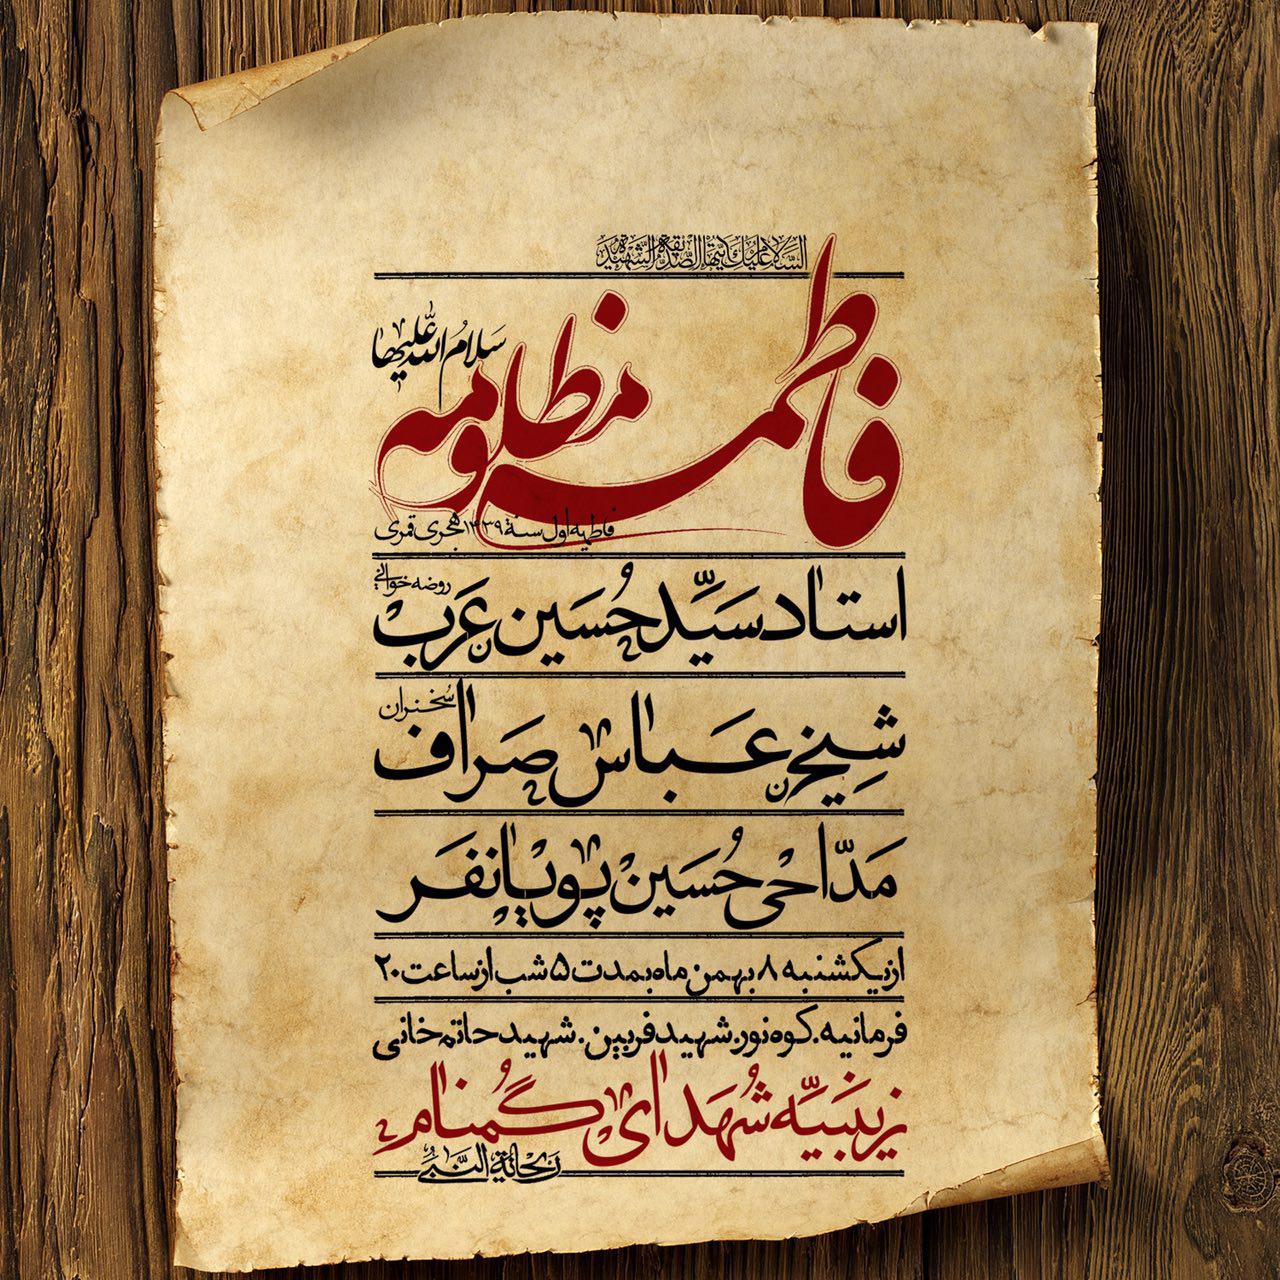 السلام علیك ایتها الصدیقة الشهیدة
فاطمه مظلومه
سَلامُ الله عَلَیها
فاطمیه اول سنة ۱۴۳۹ هجری قمری
استاد سَیِّد حُسَین عَرَب
روضه خوانی
شِیخ عَباس صَراف
سُخنران
مَدّاحی حُسَین پویانفَر
از یکشنبه ۸ بهمن ماه بمدت ۵ شب از ساعت ۲۰
فرمانیه . کوه نور . شهید فربین . شهید حاتم خانی
زینَبیّه شُهَدای گمُنام
رَیحانَة النَّبیُّ